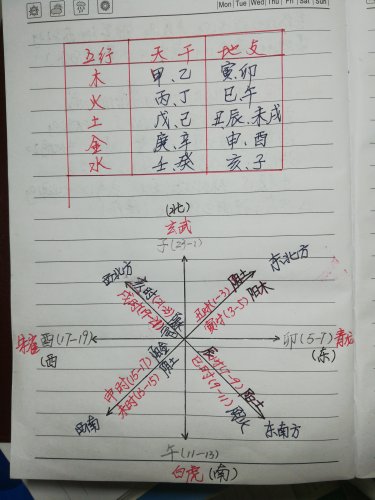 Mon Tue Wed Thu Fri Sat Sun
五行 天干 地支
木 甲、乙 寅、卯
火 丙、丁 巳、午
土 戊、己 丑、辰、未、戌
金 庚、辛 申、酉
水 壬、癸 亥、子
(北)
玄武
子(23-1)
西北方 东北方
亥时(21-23)
戌时(19-21)
丑时(1-3) 阴土
寅时(3-5) 阳木
朱雀 酉(17-19) 卯(5-7) 青龙
(西 (东)
申时(15-17) 阳金
未时(13-15) 阴土
辰时(7-9) 阳土
巳时(9-11) 阴火
西南 东南方
午(11-13)
白虎(南)